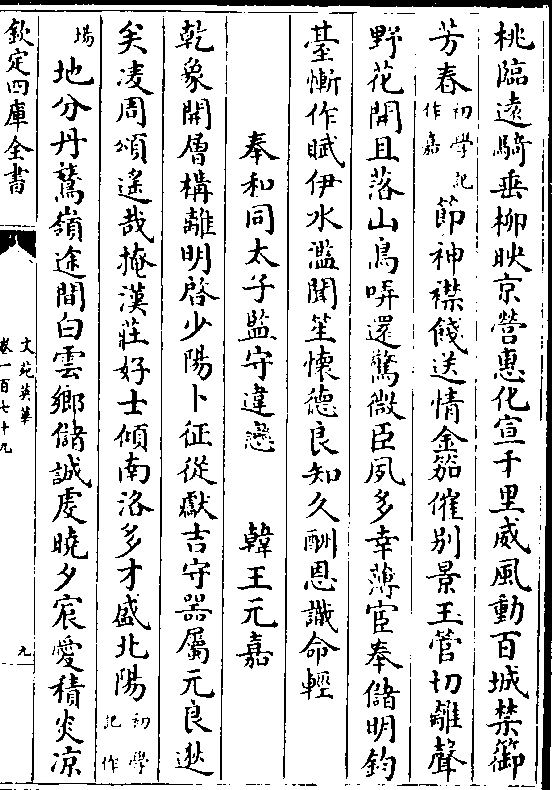 桃臨遠騎垂柳映京營惠化宣千里威風動百城禁御
芳春初學記作嘉節神襟餞送情金笳催别景玉管切離聲
野花開且落山鳥哢還驚微臣夙多幸薄宦奉儲明鈞
臺慚作賦伊水濫聞笙懷德良知久酬恩識命輕
奉和同太子監守違戀 韓王元嘉
乾象開層構離明啓少陽卜征從獻吉守器屬元良逖
矣凌周頌遙哉掩漢莊好士傾南洛多才盛北陽初學記作
場地分丹鷲嶺途間白雲鄉儲誠虔曉夕宸愛積炎凉
欽定四庫全書
文苑英華
卷一百七十九
九